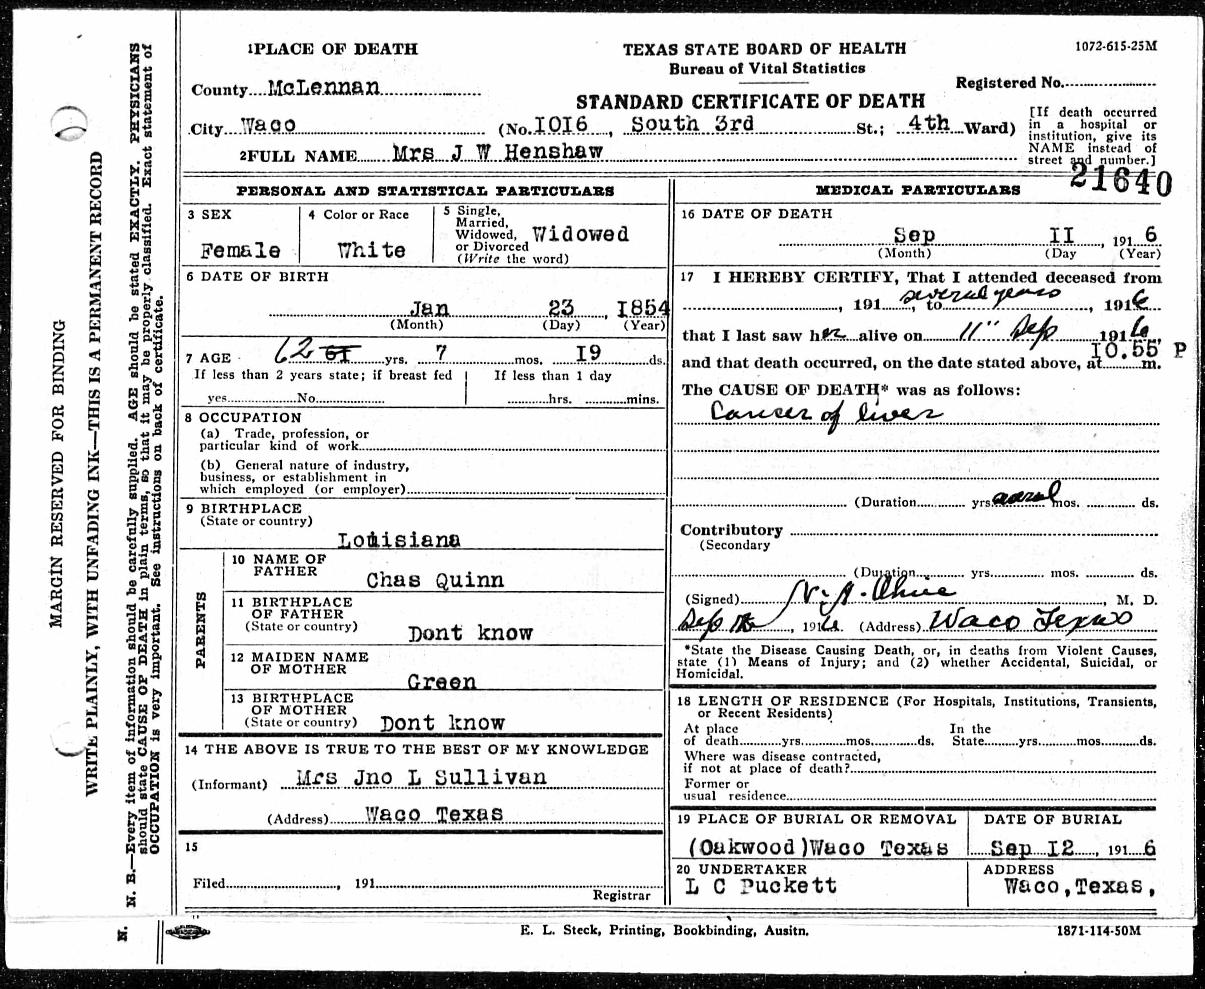 1PLACE OF DEATH
County McLennan
City Waco (No. 1016, South 3rd St.; 4th Ward)
2FULL NAME Mrs J W Henshaw
TEXAS STATE BOARD OF HEALTH
Bureau of Vital Statistics
STANDARD CERTIFICATE OF DEATH
1072-615-25M
Registered No.
[If death occurred
in a hospital or
institution, give its
NAME instead of
street and number.]
21640
PERSONAL AND STATISTICAL PARTICULARS
3 SEX
Female
4 Color or Race
White
5 Single,
Married,
Widowed,
or Divorced
(Write the word)
Widowed
6 DATE OF BIRTH
Jan 23, 1854
(Month) (Day) (Year)
7 AGE 62 61 yrs. 7 mos. 19 ds.
If less than 2 years state; if breast fed
yes No.
If less than 1 day
hrs. mins.
8 OCCUPATION
(a) Trade, profession, or
particular kind of work
(b) General nature of industry,
business, or establishment in
which employed (or employer)
9 BIRTHPLACE
(State or country)
Louisiana
PARENTS
10 NAME OF
FATHER
Chas Quinn
11 BIRTHPLACE
OF FATHER
(State or country)
Dont know
12 MAIDEN NAME
OF MOTHER
Green
13 BIRTHPLACE
OF MOTHER
(State or country) Dont know
14 THE ABOVE IS TRUE TO THE BEST OF MY KNOWLEDGE
(Informant) Mrs Jno L Sullivan
(Address) Waco Texas
15
Filed, 191
Registrar
MEDICAL PARTICULARS
16 DATE OF DEATH
Sep 11, 1916
(Month) (Day (Year)
17 I HEREBY CERTIFY, That I attended deceased from
, 191, to several years, 1916
that I last saw her alive on 11" Sep 1916,
and that death occurred, on the date stated above, at 10.55 P m.
The CAUSE OF DEATH* was as follows:
Cancer of liver
(Duration yrs. mos. ds.
Contributory
(Secondary
(Duration yrs. mos. ds.
(Signed) , M. D.
Sep , 1916 (Address) Waco Texas
*State the Disease Causing Death, or, in deaths from Violent Causes,
state (1) Means of Injury; and (2) whether Accidental, Suicidal, or
Homicidal.
18 LENGTH OF RESIDENCE (For Hospitals, Institutions, Transients,
or Recent Residents)
At place
of death yrs. mos. ds.
In the
State yrs. mos. ds.
Where was disease contracted,
if not at place of death?
Former or
usual residence
19 PLACE OF BURIAL OR REMOVAL
(Oakwood)Waco Texas
DATE OF BURIAL
Sep 12, 1916
20 UNDERTAKER
L C Puckett
ADDRESS
Waco,Texas,
E. L. Steck, Printing, Bookbinding, Ausitn.
1871-114-50M
MARGIN RESERVED FOR BINDING
WRITE PLAINLY, WITH UNFADING INK—THIS IS A PERMANENT RECORD
N. B.—Every item of information should be carefully supplied. AGE should be stated EXACTLY. PHYSICIANS
should state CAUSE OF DEATH in plain terms, so that it may be properly classified. Exact statement of
OCCUPATION is very important. See instructions on back of certificate.
N.